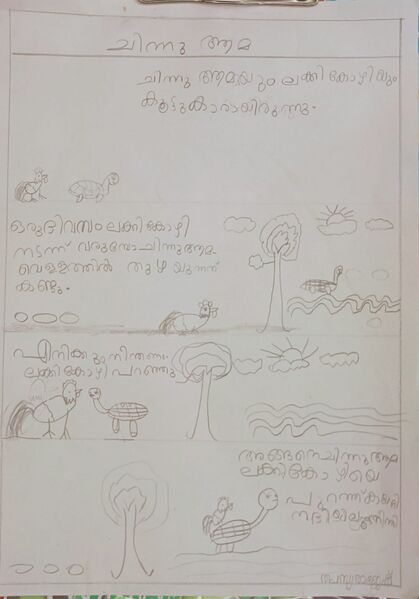 ചിന്നു ആമ
ചിന്നു ആമയും ലക്കി കോഴിയും
കൂട്ടുകാരായിരുന്നു.
ഒരുദിവസം ലക്കി കോഴി
നടന്ന് വരുമ്പോ ചിന്നു ആമ
വെള്ളത്തിൽ തുഴയുന്നത്
കണ്ടു.
എനിക്കും നീന്തണം
ലക്കികോഴി പറഞ്ഞു
അങ്ങനെ ചിന്നു ആമ
ലക്കികോഴിയെ
പുറത്ത് കയറ്റി
നദിയിലൂടെ നീന്തി